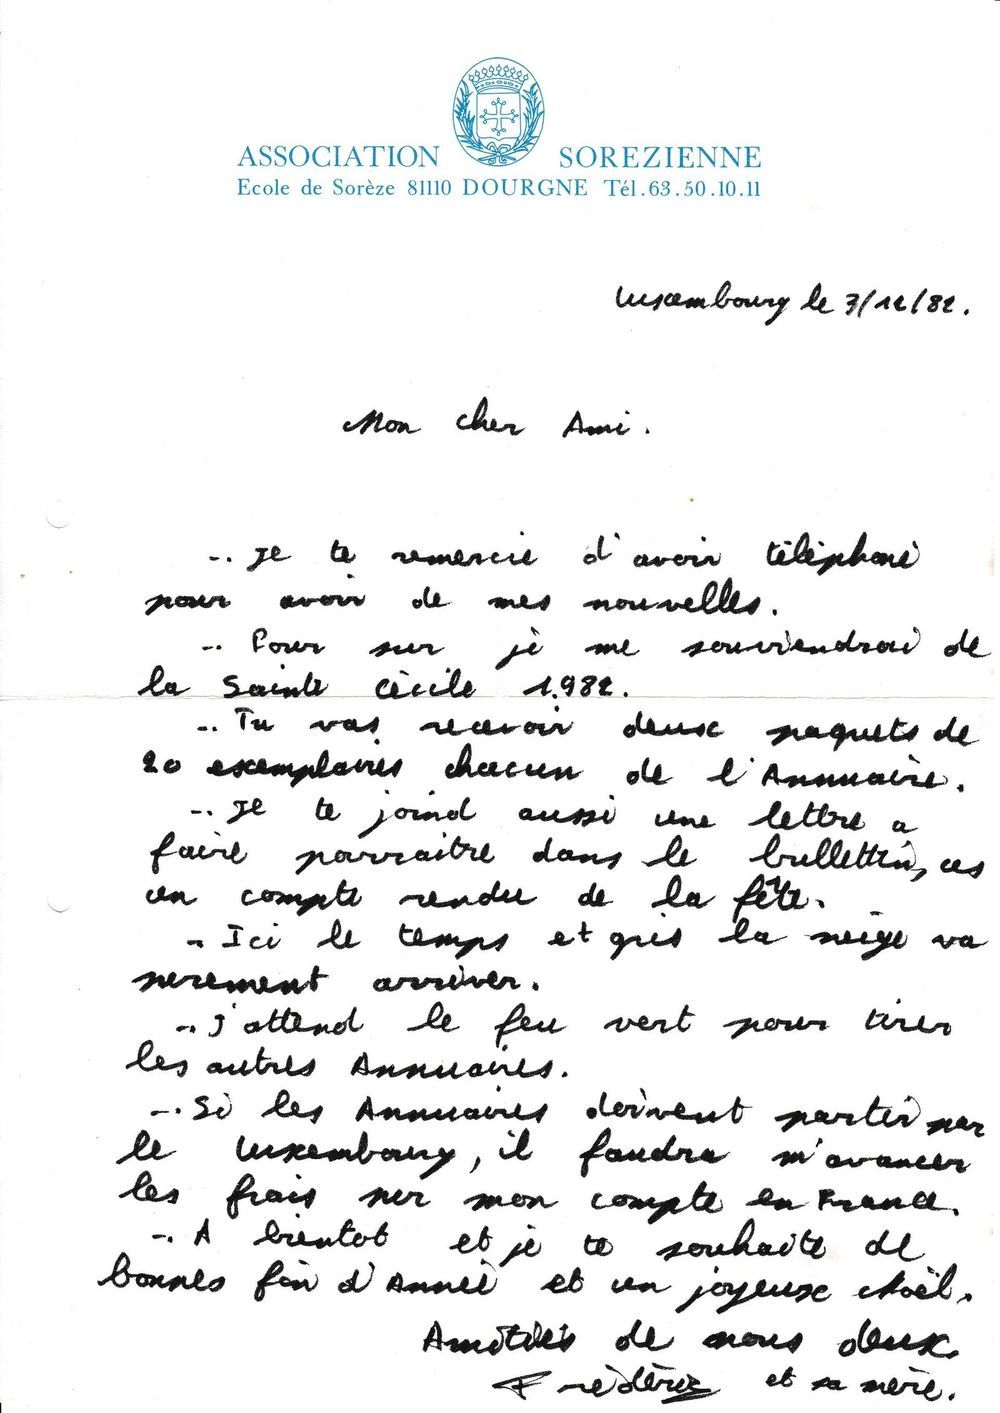 ASSOCIATION SOREZIENNE
Ecole de Sorèze 81110 DOURGNE Tél.63.50.10.11
Luxembourg le 3/12/82.
Mon cher Ami.
-. Je te remercie d'avoir téléphoné
pour avoir de mes nouvelles.
-. Pour sur je me souviendrai de
la Sainte Cécile 1.982.
-. Tu vas recevoir deux paquets de
20 exemplaires chacun de l'Annuaire.
-. Je te joind aussi une lettre a
faire parraitre dans le bullettin,
un compte rendu de la fête.
-. Ici le temps et gris la neige va
surement arriver.
-. J'attend le feu vert pour tirer
les autres Annuaires.
-. Si les Annuaires doivent partir par
le Luxembourg, il faudra m'avancer
les frais sur mon compte en France.
-. A bientot et je te souhaite de
bonnes fin d'Année et un joyeux Noël.
Amitiés de nous deux.
Frédéric et sa mère.